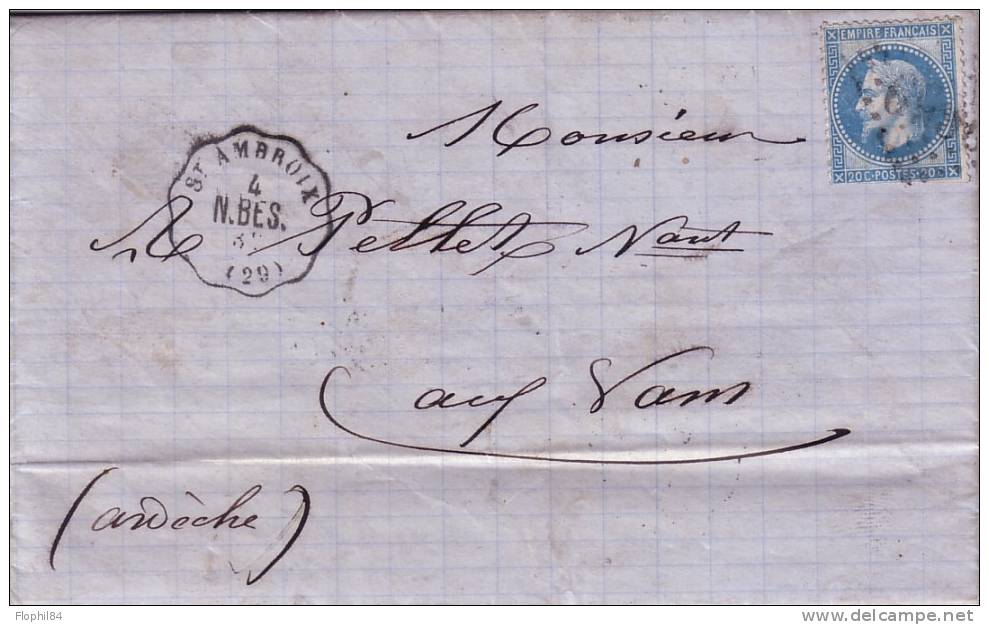 EMPIRE FRANÇAIS
20 C·POSTES·20 C
Monsieur
ST AMBROIX
4
N.BES.
(29)
Pellet Nant
aux Vans
(ardèche)
Flophil84
delcampe.net